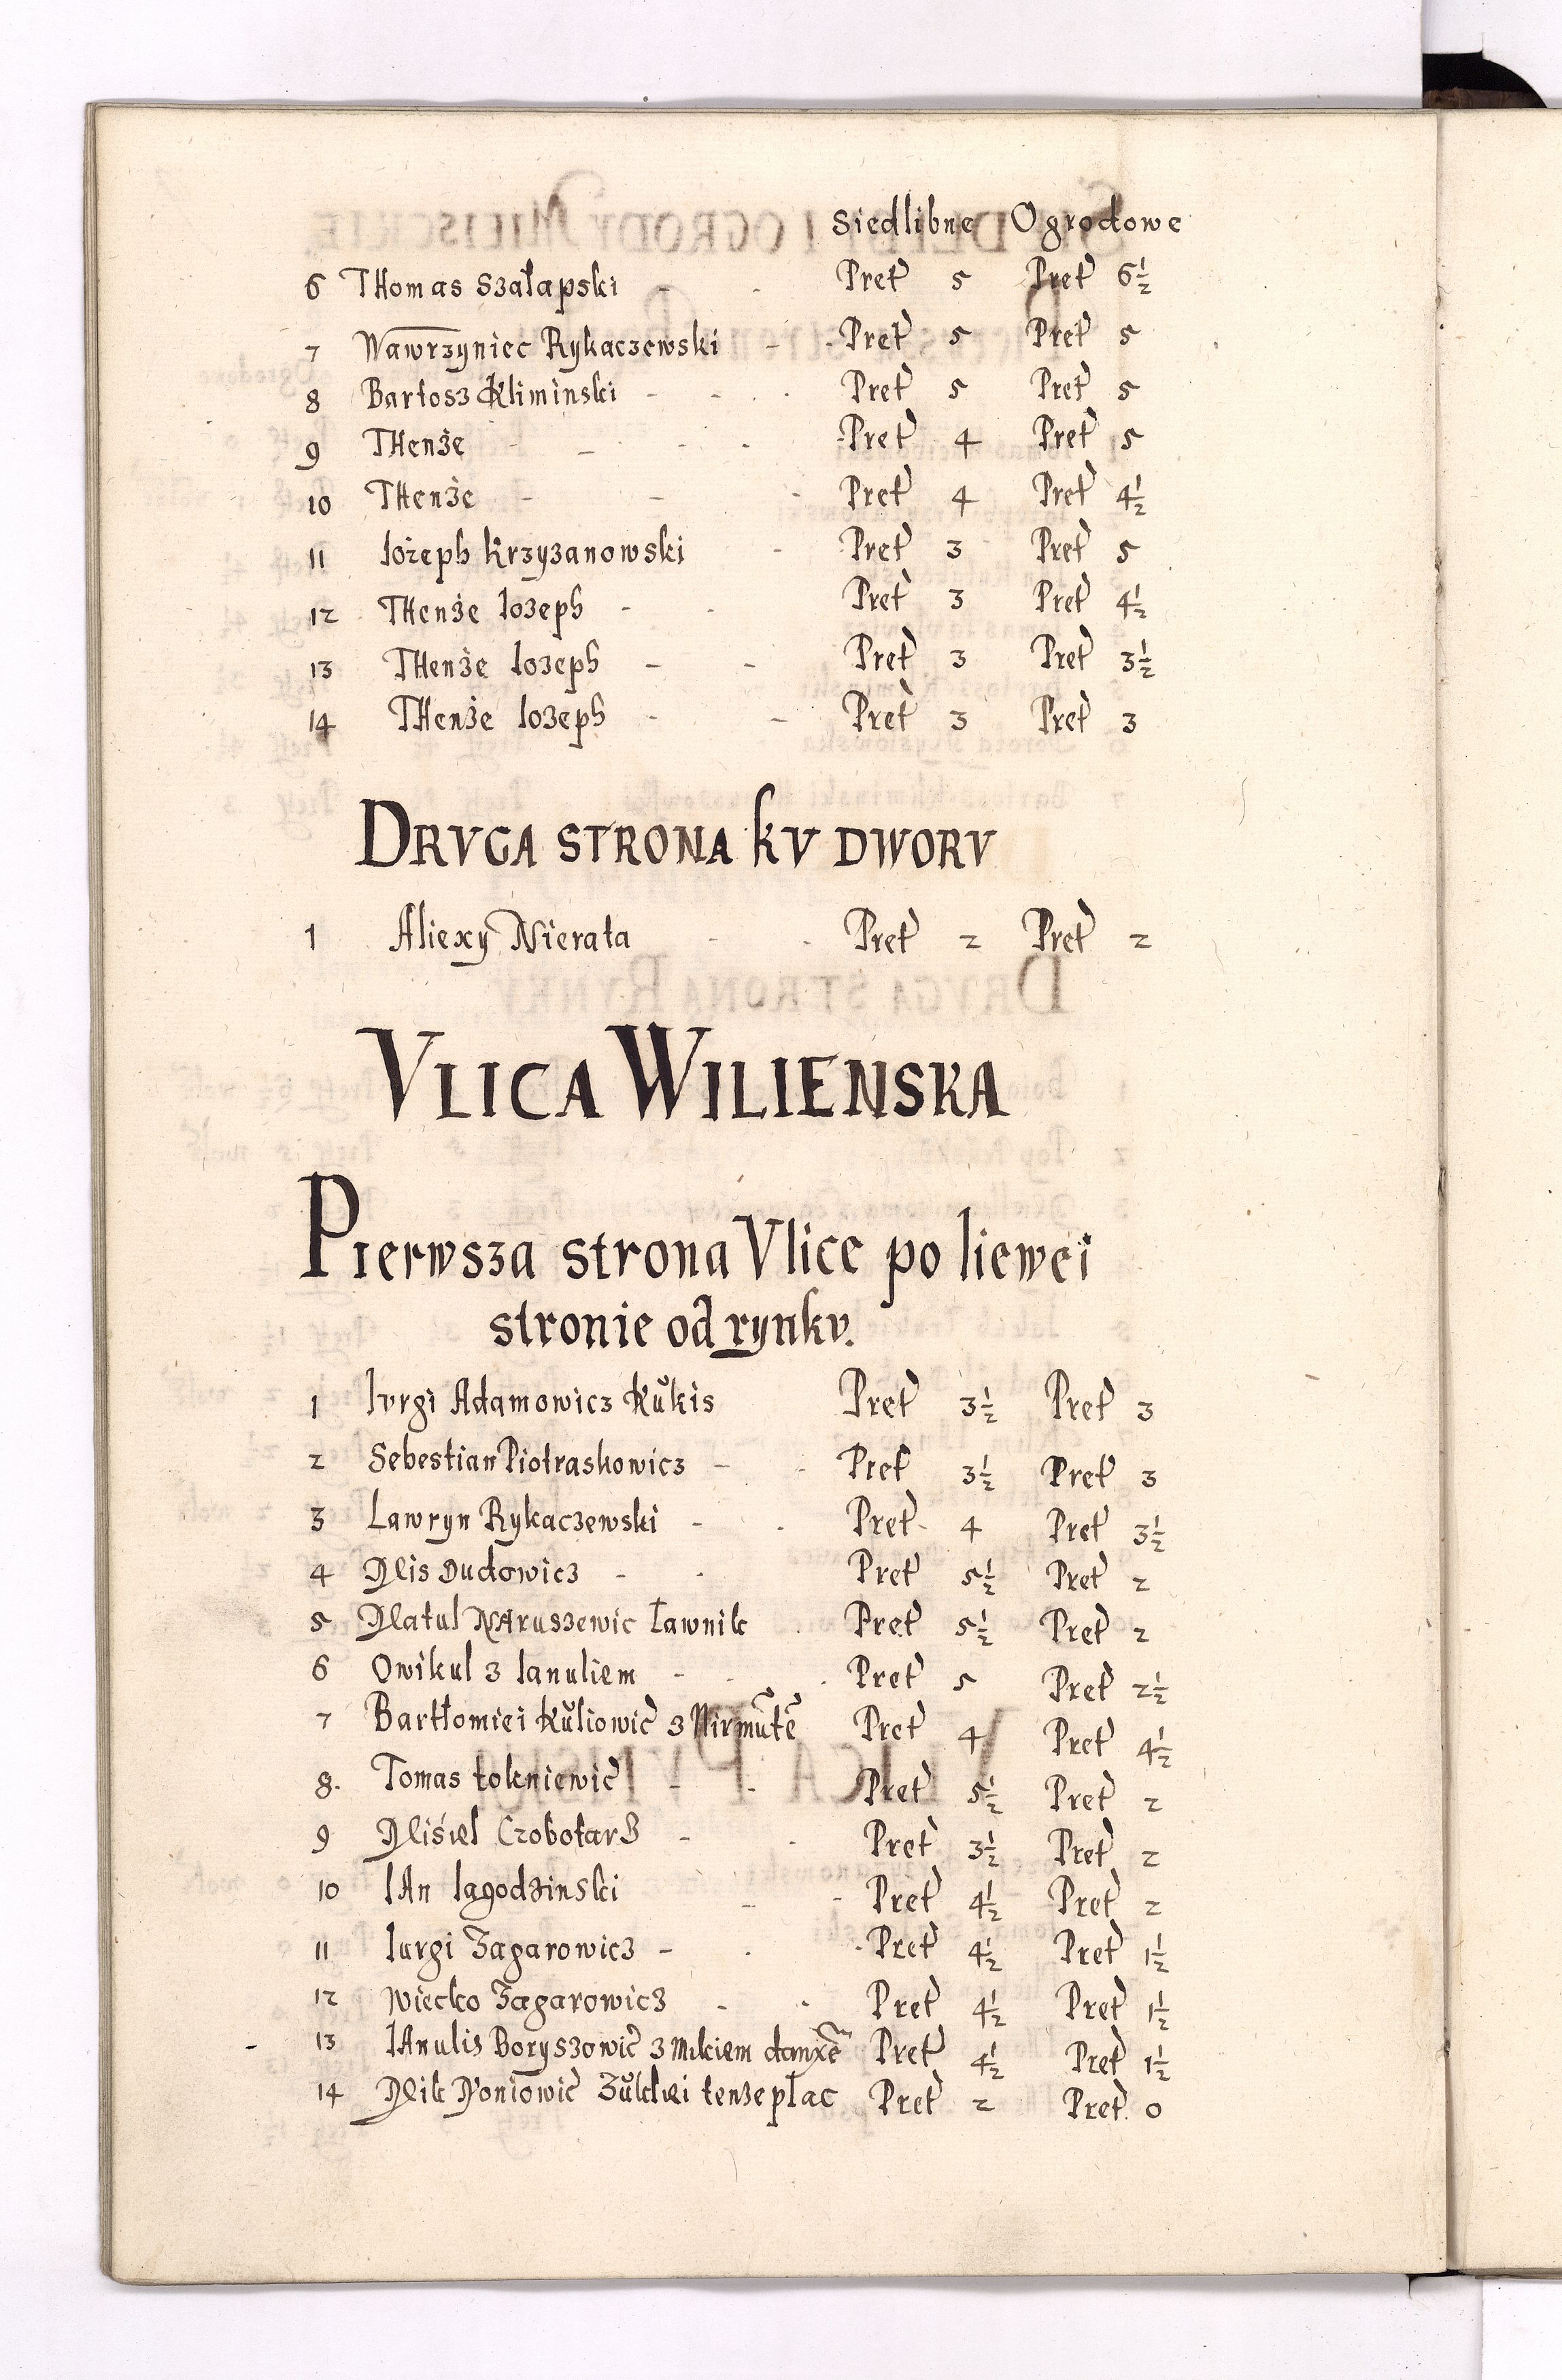 Siedlibne Ogrodowe
6 THomas Szałapski - - Pręt 5 Pręt 6½
7 Wawrzyniec Rykaczewski - - Pręt 5 Pręt 5
8 Bartosz Kliminski - - - Pręt 5 Pręt 5
9 THenże - - - - Pręt 4 Pręt 5
10 THenże - - - Pręt 4 Pręt 4½
11 Iożeph Krzyzanowski - Pręt 3 Pręt 5
12 THenże Iozeph - - Pręt 3 Pręt 4½
13 THenże Iozeph - - Pręt 3 Pręt 3½
14 THenże Iozeph - - Pręt 3 Pręt 3
DRVGA STRONA KV DWORV
1 Aliexy Nierata - - Pręt 2 Pręt 2
VLICA WILIENSKA
Pierwsza strona Vlice po liewei
stronie od rynkv.
1 Ivrgi Adamowicz Kŭkis Pręt 3½ Pręt 3
2 Sebestian Piotraskowicz - - Pręt 3½ Pręt 3
3 Lawryn Rykaczewski - - Pręt 4 Pręt 3½
4 Mis Dudowicz - - Pręt 5½ Pręt 2
5 Matul NAruszewic Ławnik Pręt 5½ Pręt 2
6 Owikul z Ianuliem - - Pręt 5 Pręt 2½
7 Bartłomiei Kŭliowic z Pręt 4 Pręt 4½
8. Tomas - - Pręt 5½ Pręt 2
9 Czobotarz - - Pręt 3½ Pręt 2
10 IAn Iagodzinski - - Pręt 4½ Pręt 2
11 Iurgi Zagarowicz - - Pręt 4½ Pręt 1½
12 Wiecko Zagarowicz - - Pręt 4½ Pręt 1½
13 IAnulis Boryszowic z Pręt 4½ Pręt 1½
14 tenze płac Pręt 2 Pręt 0